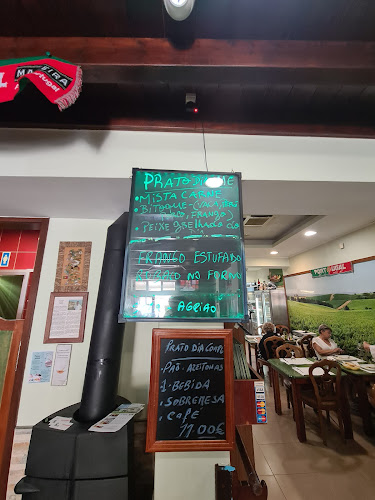 MADEIRA
PRATOS DO DIA
• MISTA CARNE
• BITOQUE - (VACA, PERU
FRANGO)
• PEIXE GRELHADO do
FRANGO ESTUFADO
NO FORNO
AGRIÃO
PRATO DIA COMPL
• PÃO, AZEITONAS
1. BEBIDA
• SOBREMESA
• CAFÉ
11.00€
PORTUGAL